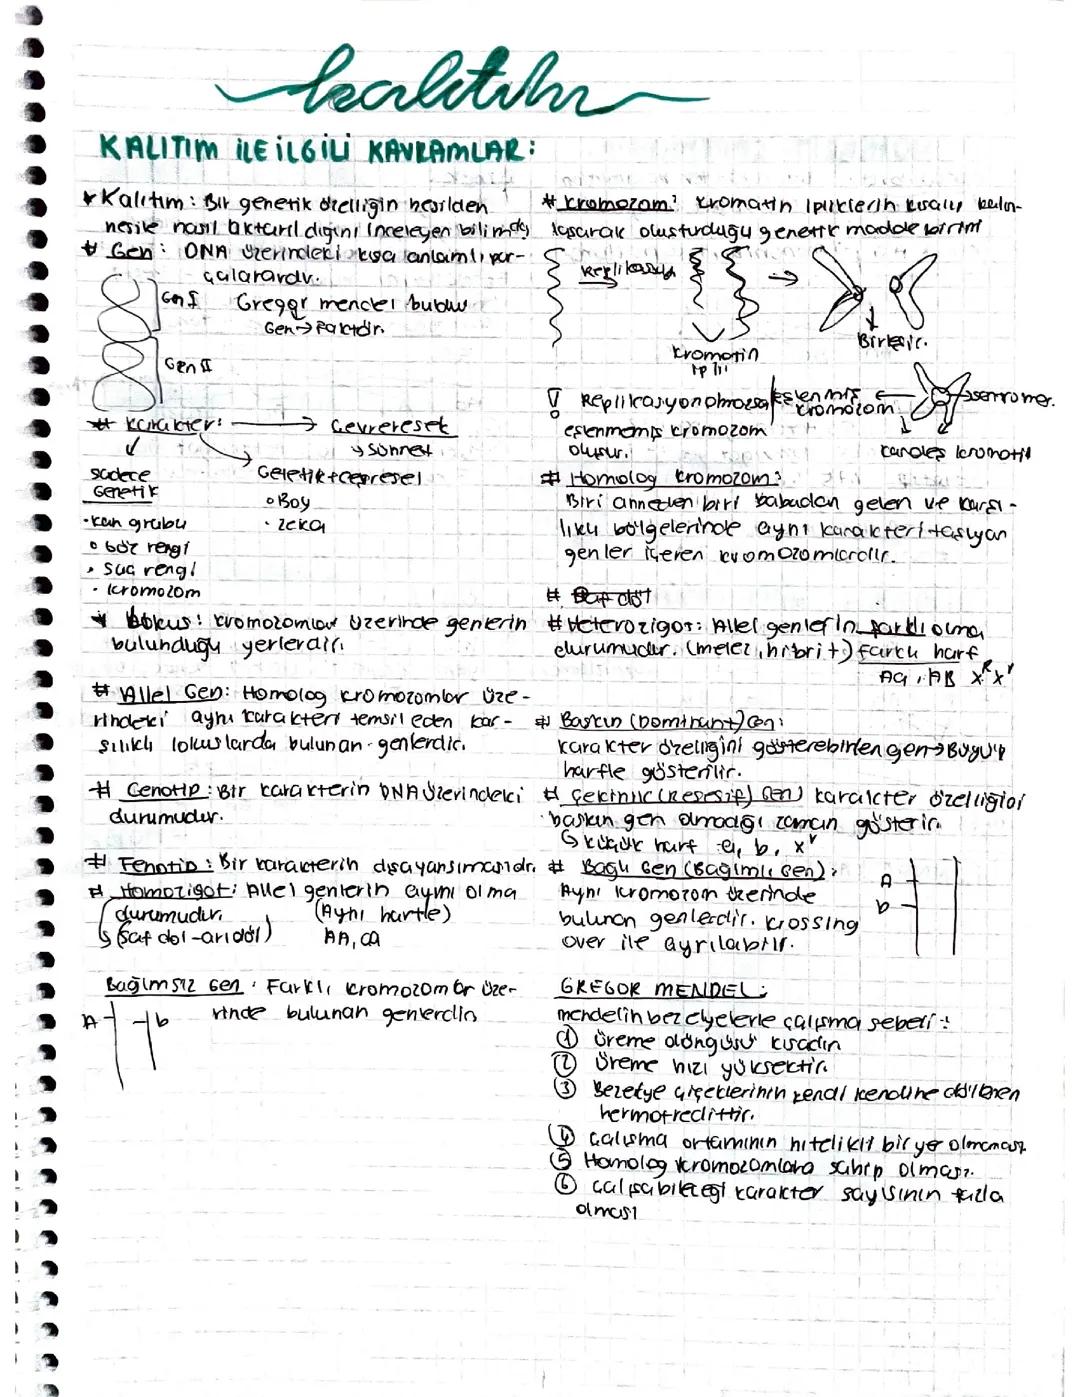 kalıtım
KALITIM İLE İLGİLİ KAVRAMLAR:
* Kalıtım: Bir genetik özelliğin nesilden
nesile nasıl aktarıldığını inceleyen bilimdir
# Gen: DNA üzerindeki kısa anlamlı par-
çalarardır.
Gen I
Gregor mendel buldu
Gen → Faktör.
Gen II
# Karakter: → Çevreresel
↳ Sünnet
sadece
Genetik
Geletik+çevresel
• Boy
• zeka
• kan grubu
• Göz rengi
• Saç rengi
• kromozom
* Lokus: kromozomlar üzerinde genlerin
bulunduğu yerlerdir.
# Allel Gen: Homolog kromozomlar üze-
rindeki aynı karakteri temsil eden kar-
şılıklı lokuslarda bulunan genlerdir.
# Genotip: Bir karakterin DNA üzerindeki
durumudur.
# Fenotip: Bir karakterin dışa yansımasıdır.
# Homozigot: Allel genlerin aynı olma
durumudur. (Aynı harfle)
↳ (Saf döl-arı döl) AA, aa
Bağımsız Gen: Farklı kromozomlar üze-
rinde bulunan genlerdir.
A b
# Kromozom: kromatin ipliklerin kısalıp kalın-
laşarak oluşturduğu genetik madde birimi
Replikasyon →
Kromatin
ipliği
Birleşir.
! Replikasyon olmazsa
eşlenmemiş kromozom
oluşur.
eşlenmiş
kromozom
sentromer.
kardeş kromatit
# Homolog kromozom:
Biri anneden biri babadan gelen ve karşı-
lıklı bölgelerinde aynı karakteri taşıyan
genler içeren kromozomlardır.
# Saf döl
# Heterozigot: Allel genlerin farklı olma
durumudur. (melez, hibrit) farklı harf
Aa, AB X^R X^r
# Baskın (Dominant) Gen:
karakter özelliğini gösterebilen gen → Büyük
harfle gösterilir.
# Çekinik (Resesif) Gen) karakter özelliğini
baskın gen olmadığı zaman gösterir.
↳ küçük harf a, b, x^r
# Bağlı Gen (Bağımlı Gen):
Aynı kromozom üzerinde
bulunan genlerdir. krossing
over ile ayrılabilir.
A
b
GREGOR MENDEL:
mendelin bezelyelerle çalışma sebebi:
① Üreme döngüsü kısadır
② Üreme hızı yüksektir.
③ Bezelye çiçeklerinin kendi kendine döllenen
④ Çalışma ortamının nitelikli bir yer olmaması
⑤ Homolog kromozomlara sahip olması.
⑥ Çalışabileceği karakter sayısının fazla
olması